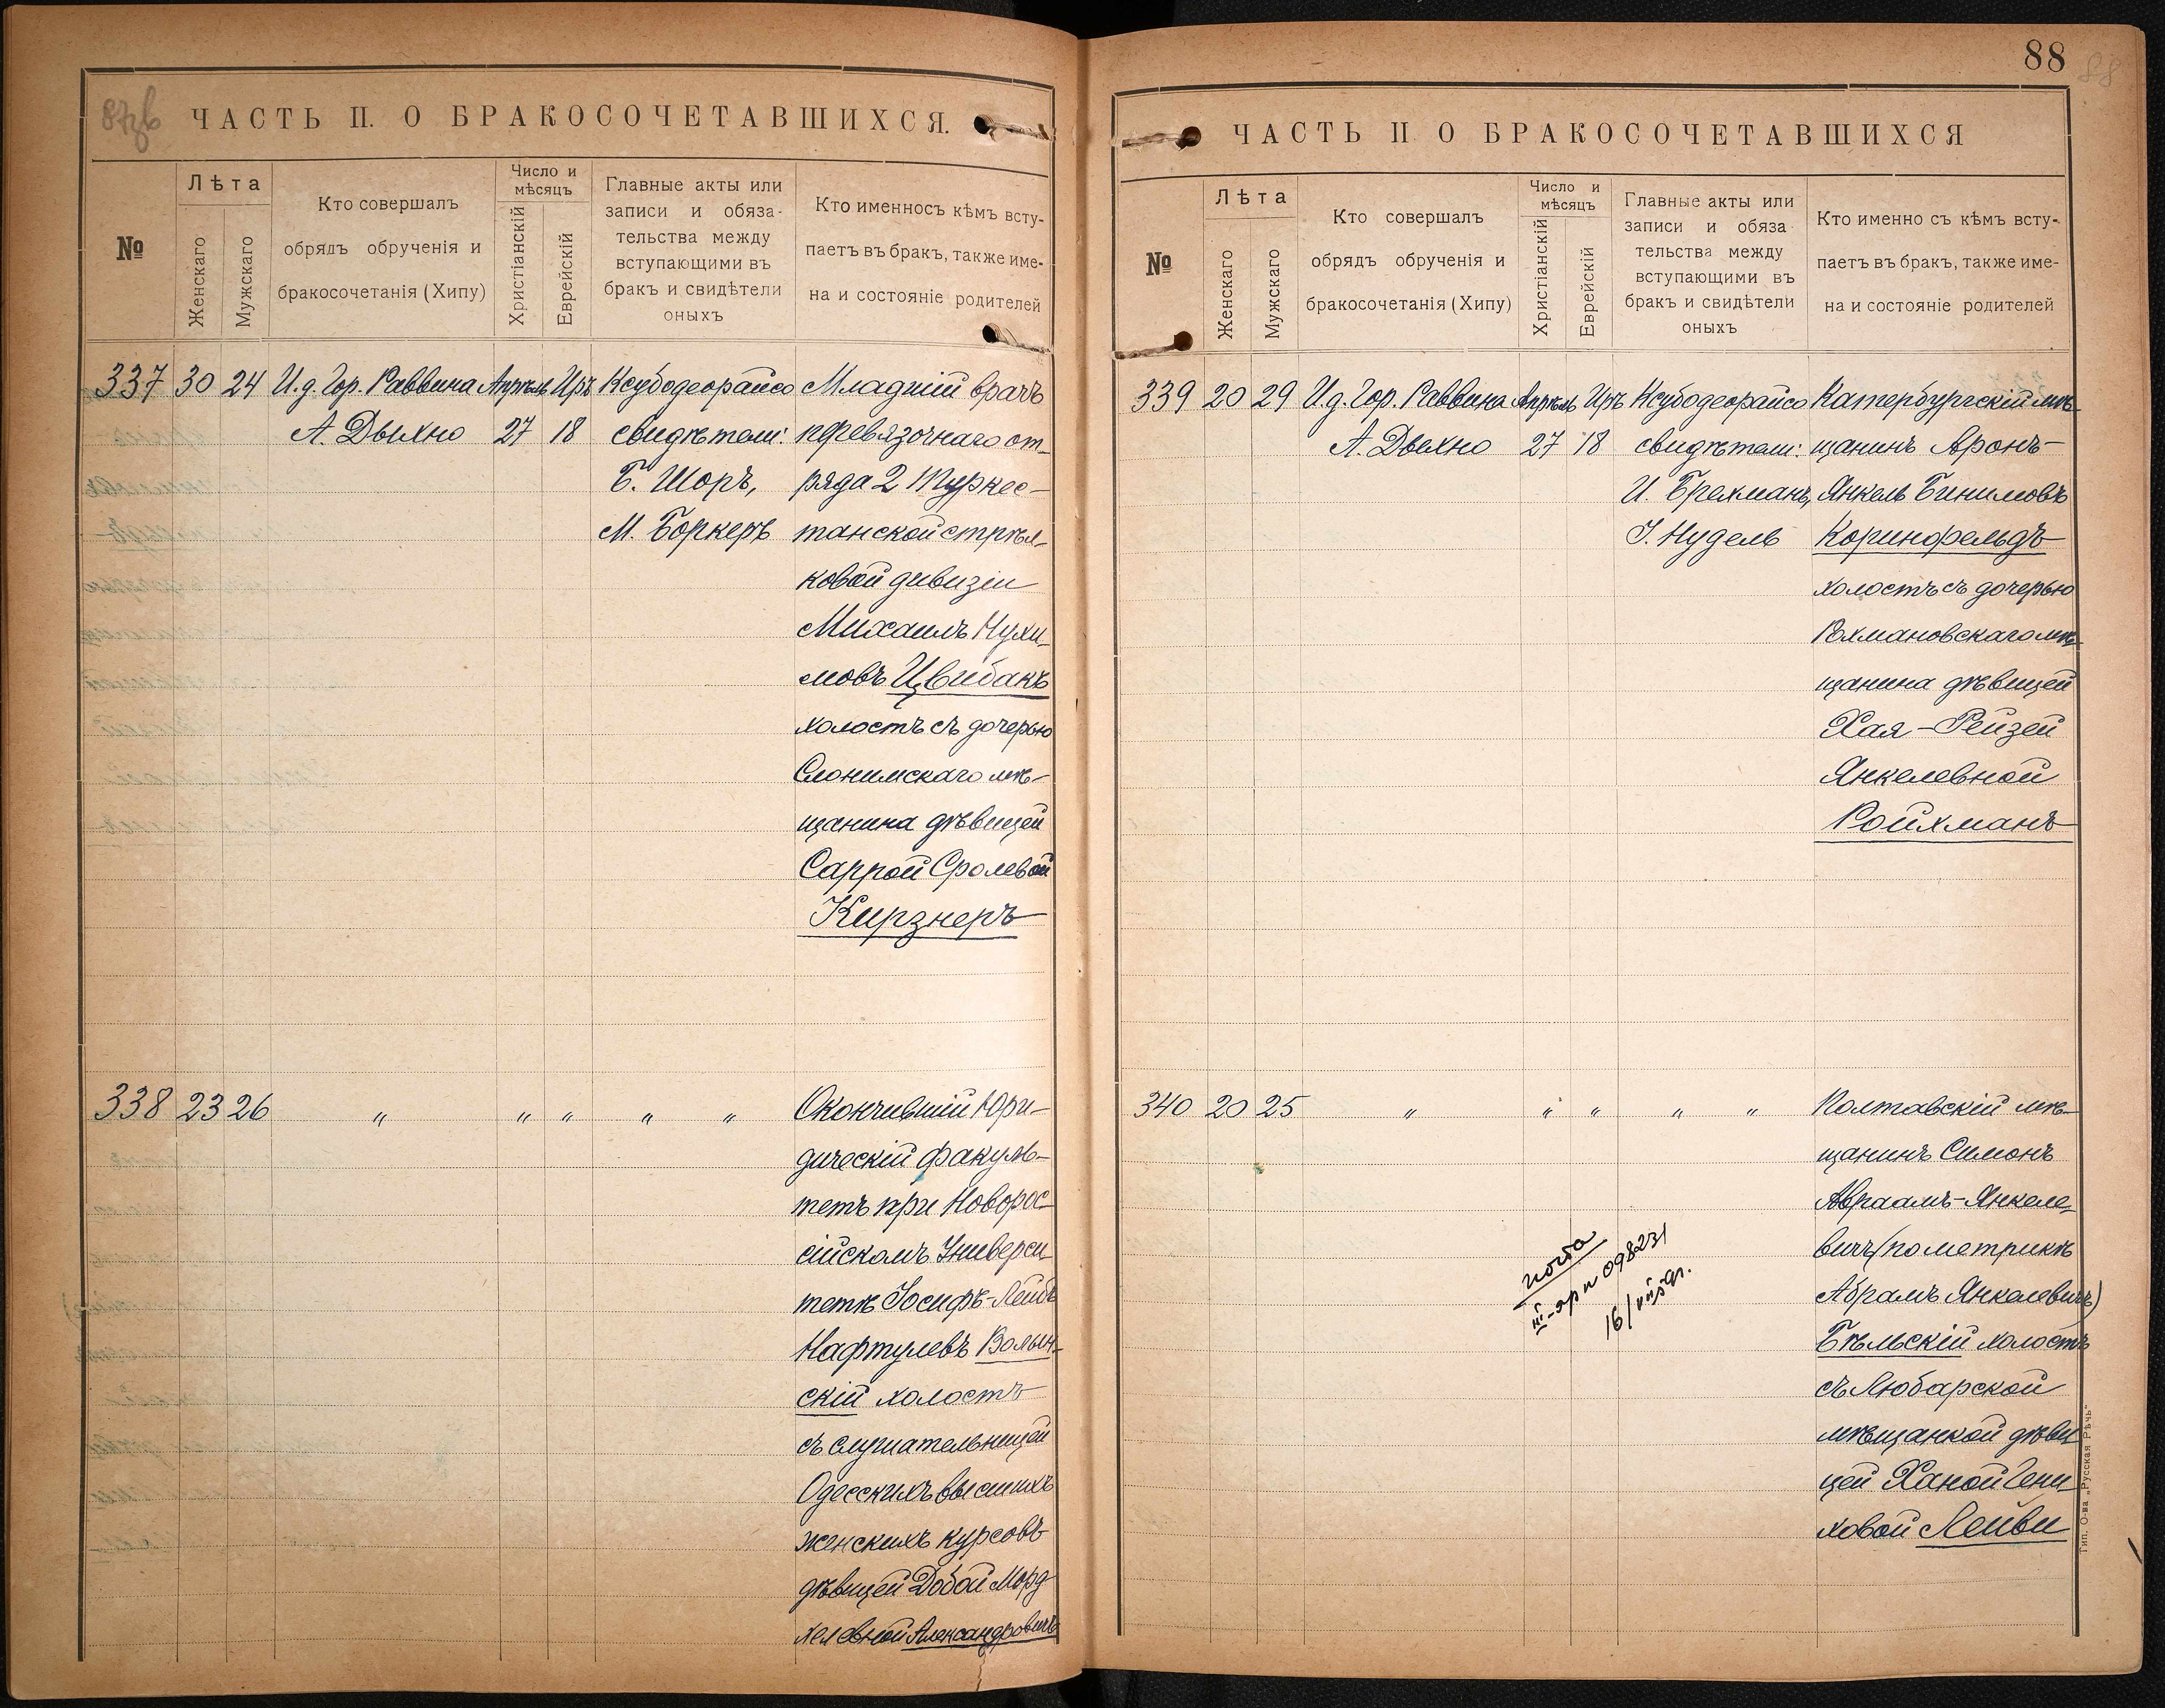 88
ЧАСТЬ II. О БРАКОСОЧЕТАВШИХСЯ.
№
Лѣта
Женскаго
Мужскаго
Кто совершалъ
обрядъ обрученія и
бракосочетанія (Хипу)
Число и
мѣсяцъ
Христіанскій
Еврейскій
Главные акты или
записи и обяза-
тельства между
вступающими въ
бракъ и свидѣтели
оныхъ
Кто именносъ кѣмъ всту-
паетъ въ бракъ, также име-
на и состояніе родителей
337 30 24 И.д. Гор. Раввина Апрѣль Иръ Ксубодеорайсо Младшій врачъ
А. Дыхно 27 18 свидѣтели: перевязочнаго от-
Б. Шоръ, ряда 2 Туркес-
М. Боркеръ танской стрѣл-
ковой дивизіи
Михаилъ Нухи-
мовъ Цвибакъ
холостъ съ дочерью
Слонимскаго мѣ-
щанина дѣвицей
Саррой Сролевой
Кирзнеръ
338 23 26 " " " " " Окончившій Юри-
дическій факуль-
тетъ при Новорос-
сійскомъ Универси-
тетѣ Іосифъ-Лейбъ
Нафтулевъ Волын-
скій холостъ
съ слушательницей
Одесскихъ высшихъ
женскихъ курсовъ
дѣвицей Добой Морд-
хелевной Александровичъ
ЧАСТЬ II О БРАКОСОЧЕТАВШИХСЯ
№
Лѣта
Женскаго
Мужскаго
Кто совершалъ
обрядъ обрученія и
бракосочетанія (Хипу)
Число и
мѣсяцъ
Христіанскій
Еврейскій
Главные акты или
записи и обяза
тельства между
вступающими въ
бракъ и свидѣтели
оныхъ
Кто именно съ кѣмъ всту-
паетъ въ бракъ, также име-
на и состояніе родителей
339 20 29 И.д. Гор. Раввина Апрѣль Иръ Ксубодеорайсо Катербургскій мѣ-
А. Дыхно 27 18 свидѣтели: щанинъ Аронъ-
И. Брехманъ, Янкель Бинимовъ
І. Нудель Коринфельдъ
холостъ съ дочерью
Рохмановскаго мѣ-
щанина дѣвицей
Хая-Рейзей
Янкелевной
Ройхманъ
340 20 25 " " " " " Полтавскій мѣ-
щанинъ Симонъ
Авраамъ-Янкеле-
вичъ (по метрикѣ
Абрамъ Янкелевичъ)
Бѣльскій холостъ
съ Любарской
мѣщанкой дѣви-
цей Ханой Гени-
ховой Лейви
Тип. О-ва „Русская Рѣчь"